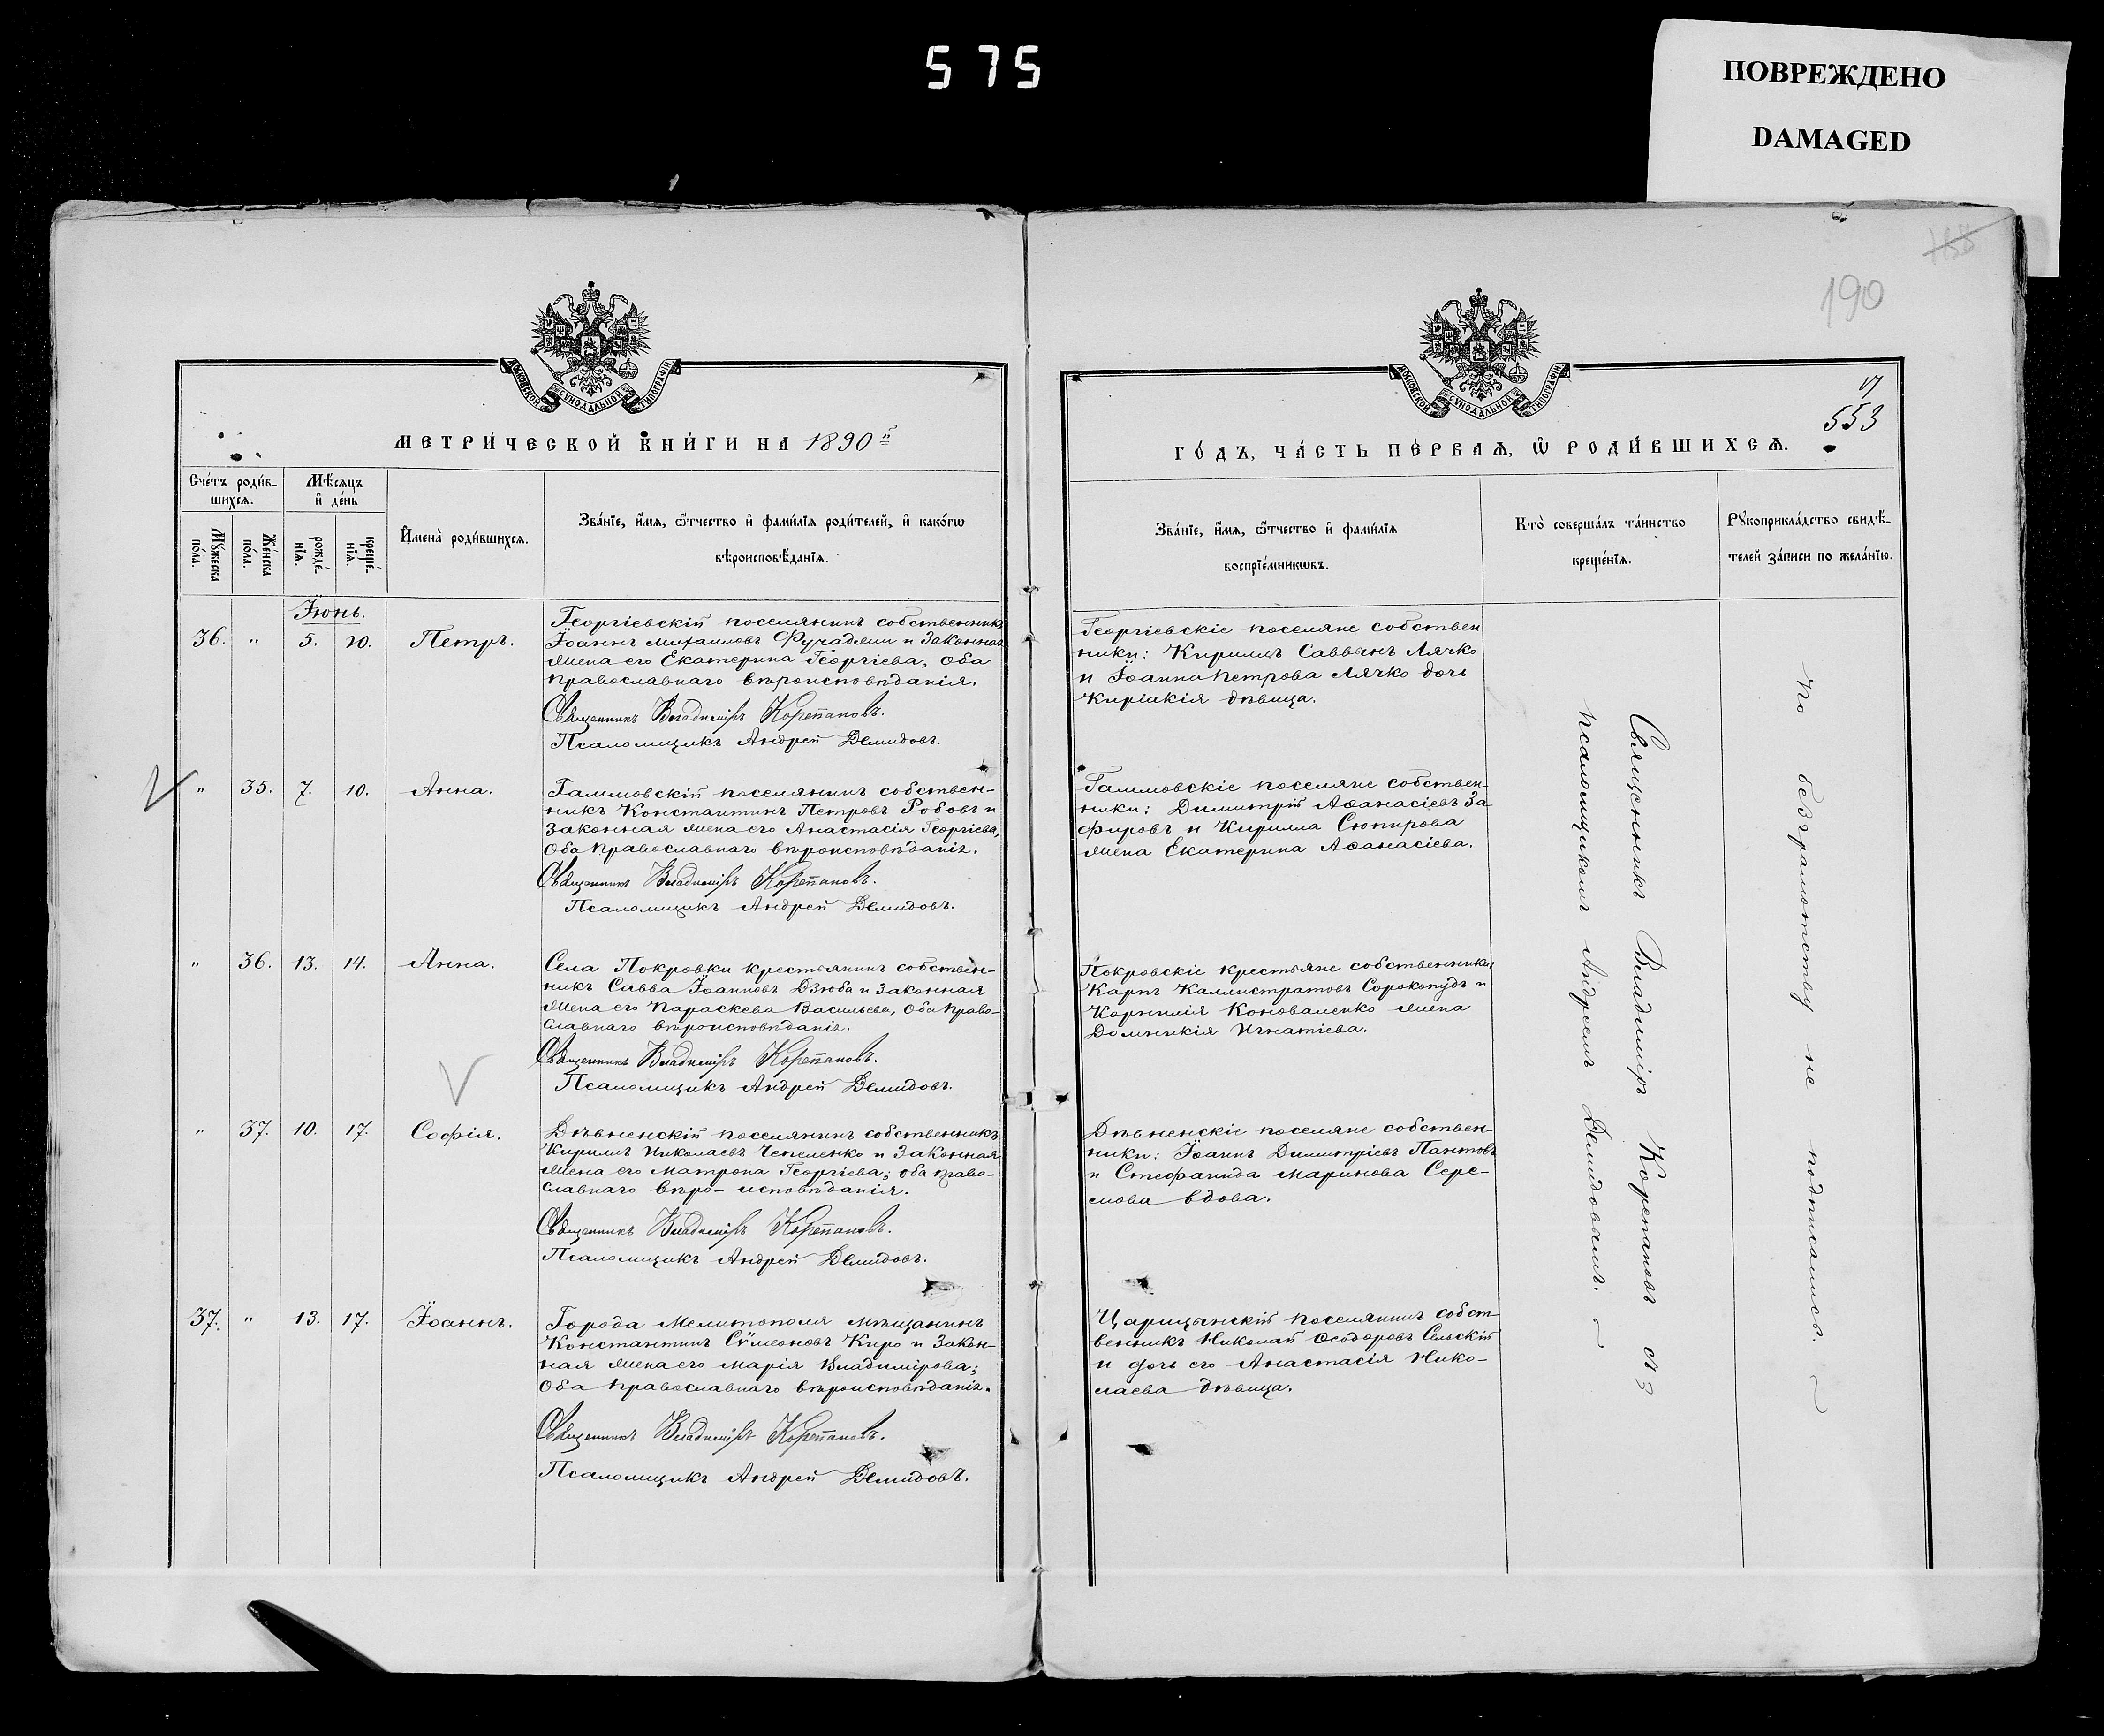 575
ПОВРЕЖДЕНО
DAMAGED
190
553
МОСКОВСКОЙ СѴНОДАЛЬНОЙ ТИПОГРАФІИ
МЕТРИ́ЧЕСКОЙ КНИ́ГИ НА 1890й
Сче́тъ роди́в-
шихсѧ.
Мѣ́сѧцъ
и҆ де́нь
Мꙋ́жеска
по́ла.
Же́нска
по́ла.
рожде́-
нїѧ.
креще́-
нїѧ.
И҆мена̀ роди́вшихсѧ.
Зва́нїе, и҆́мѧ, ѻ҆́тчество и҆ фами́лїѧ роди́телей, и҆ како́гѡ
вѣроисповѣ́данїѧ.
Іюнь.
36. " 5. 10. Петръ.
Георгіевскій поселянинъ собственникъ
Іоаннъ Михаиловъ Фучаджи и законная
жена его Екатерина Георгіева, оба
православнаго вѣроисповѣданія.
Священникъ Владиміръ Корепановъ.
Псаломщикъ Андрей Демидовъ.
" 35. 7. 10. Анна.
Гаммовскій поселянинъ собствен-
никъ Константинъ Петровъ Робовъ и
законная жена его Анастасія Георгіева,
оба православнаго вѣроисповѣданія.
Священникъ Владиміръ Корепановъ.
Псаломщикъ Андрей Демидовъ.
" 36. 13. 14. Анна.
Села Покровки крестьянинъ собствен-
никъ Савва Іоанновъ Дзюба и законная
жена его Параскева Васильева, оба право-
славнаго вѣроисповѣданія.
Священникъ Владиміръ Корепановъ.
Псаломщикъ Андрей Демидовъ.
" 37. 10. 17. Софія.
Дѣвненскій поселянинъ собственникъ
Кириллъ Николаевъ Чепеленко и законная
жена его Матрона Георгіева; оба право-
славнаго вѣро-исповѣданія.
Священникъ Владиміръ Корепановъ.
Псаломщикъ Андрей Демидовъ.
37. " 13. 17. Іоаннъ.
Города Мелитополя мѣщанинъ
Константинъ Сѵмеоновъ Киро и закон-
ная жена его Марія Владимірова;
оба православнаго вѣроисповѣданія.
Священникъ Владиміръ Корепановъ.
Псаломщикъ Андрей Демидовъ.
МОСКОВСКОЙ СѴНОДАЛЬНОЙ ТИПОГРАФІИ
ГО́ДЪ, ЧА́СТЬ ПЕ́РВАѦ, Ѡ҆ РОДИ́ВШИХСѦ.
Зва́нїе, и҆́мѧ, ѻ҆́тчество и҆ фами́лїѧ
воспрїе́мникѡвъ.
Кто̀ соверша́лъ та́инство
креще́нїѧ.
Рꙋкоприкла́дство свидѣ́-
телей за́писи по жела́нїю.
Георгіевскіе поселяне собствен
ники: Кириллъ Саввинъ Лячко
и Іоанна Петрова Лячко дочь
Киріакія дѣвица.
Гаммовскіе поселяне собствен-
ники: Димитрій Аѳанасіевъ За-
фировъ и Кирилла Сюпирова
жена Екатерина Аѳанасіева.
Покровскіе крестьяне собственники
Карпъ Каллистратовъ Сорокопудъ и
Корнилія Коноваленко жена
Домникія Игнатіева.
Дѣвненскіе поселяне собствен-
ники: Іоаннъ Димитріевъ Пантовъ
и Стефанида Маринова Сере-
мова вдова.
Царицынскій поселянинъ собст-
венникъ Николай Ѳеодоровъ Сельскій
и дочь его Анастасія Нико-
лаева дѣвица.
Священникъ Владиміръ Корепановъ съ
псаломщикомъ Андреемъ Демидовымъ.
По безграмотству не подписались.